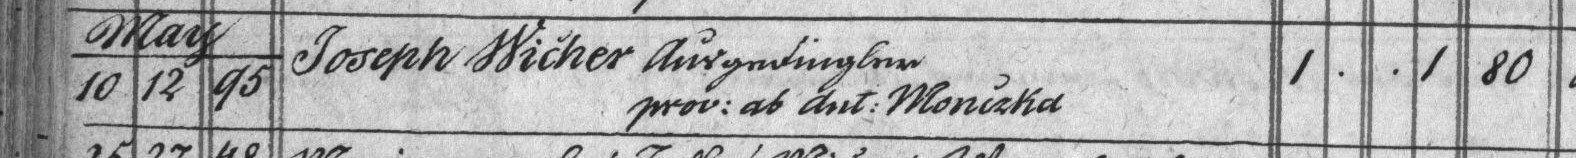 May
10 12 95 Joseph Wicher Ausgedingler 1 . . 1 80
prov: ab Ant: Moniczka
25 27 48